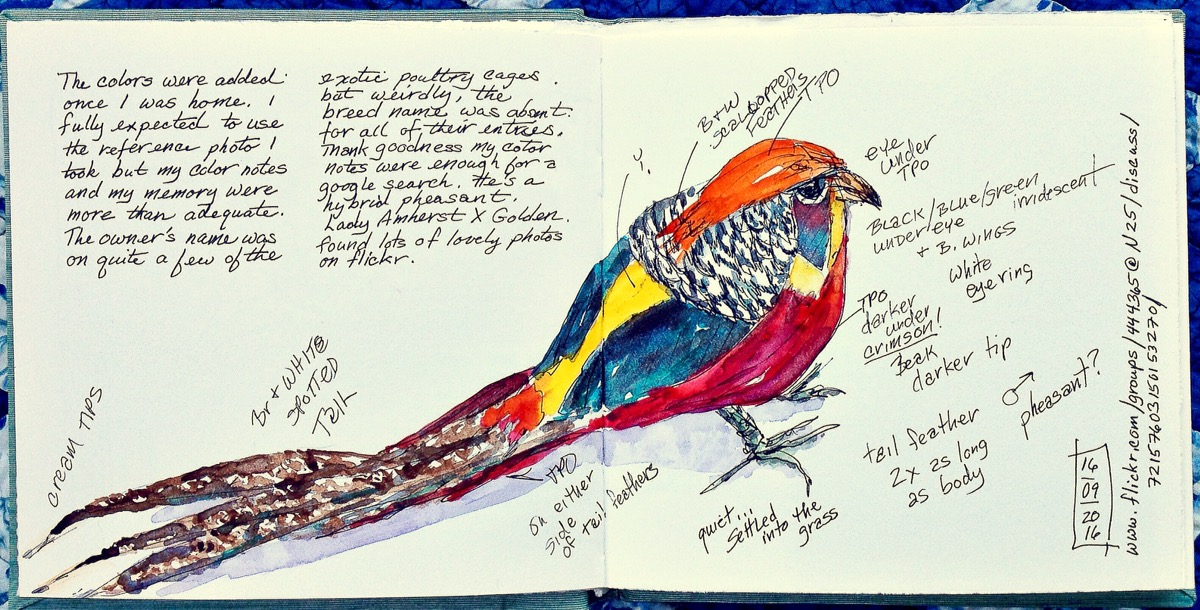 The colors were added
once I was home. I
fully expected to use
the reference photo I
took but my color notes
and my memory were
more than adequate.
The owner's name was
on quite a few of the
exotic poultry cages.
but weirdly, the
breed name was absent.
for all of their entries.
Thank goodness my color
notes were enough for a
google search. He's a
hybrid pheasant.
Lady Amherst X Golden.
found lots of lovely photos
on flickr.
B+W
SCALLOPPED
FEATHERS
TPO
Y.
eye
under
TPO
BLACK/BLUE/GREEN
irridescent
under eye
+ B. WINGS
white
eye ring
TPO
darker
under
crimson!
Beak
darker tip
♂
pheasant?
tail feather
2x as long
as body
16
09
20
16
www.flickr.com/groups/444365@N25/discuss/
72157603150153270/
cream TIPS
Br + WHITE
SPOTTED
TAIL
TPO
on either
side
of tail feathers
quiet...
settled
into the
grass